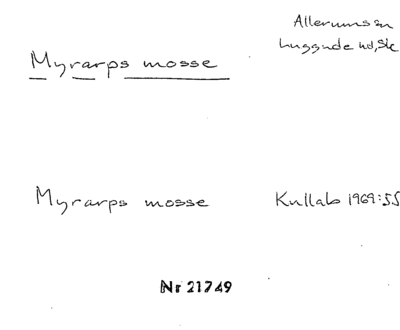 Allerums sn
Luggude hd, Sk
Myrarps mosse
Myrarps mosse Kullab 1969:55
Nr 21749